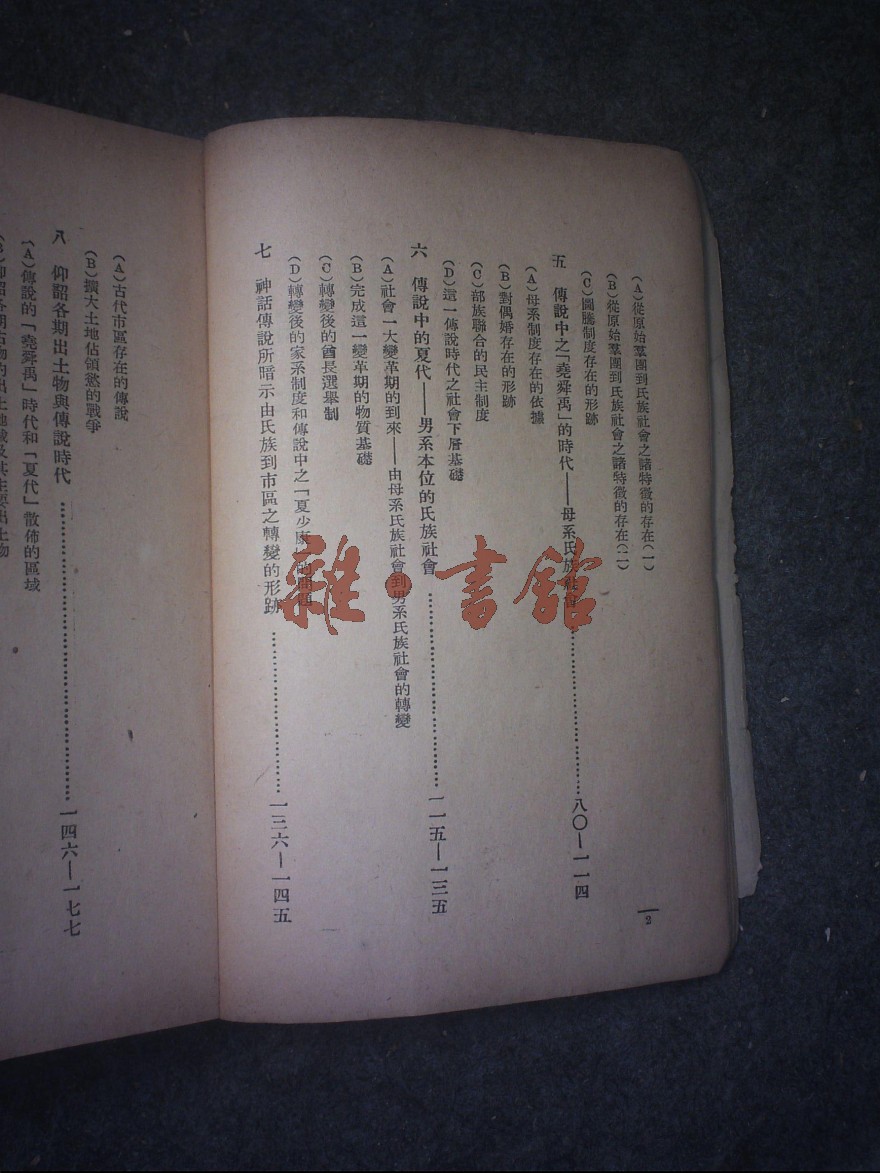 (A)從原始羣團到氏族社會之諸特徵的存在(一)
(B)從原始羣團到氏族社會之諸特徵的存在(二)
(C)圖騰制度存在的形跡
五 傳說中之「堯舜禹」的時代——母系氏族社會…………八〇—一一四
(A)母系制度存在的依據
(B)對偶婚存在的形跡
(C)部族聯合的民主制度
(D)這一傳說時代之社會下層基礎
六 傳說中的夏代——男系本位的氏族社會…………一一五—一三五
(A)社會一大變革期的到來——由母系氏族社會到男系氏族社會的轉變
(B)完成這一變革期的物質基礎
(C)轉變後的酋長選舉制
(D)轉變後的家系制度和傳說中之「夏少康」的問題
七 神話傳說所暗示由氏族到市區之轉變的形跡…………一三六—一四五
2
(A)古代市區存在的傳說
(B)擴大土地佔領慾的戰爭
八 仰韶各期出土物與傳說時代…………一四六—一七七
(A)傳說的「堯舜禹」時代和「夏代」散佈的區域
(B)仰韶各期古物的出土地域及其主要出土物
雜·書館